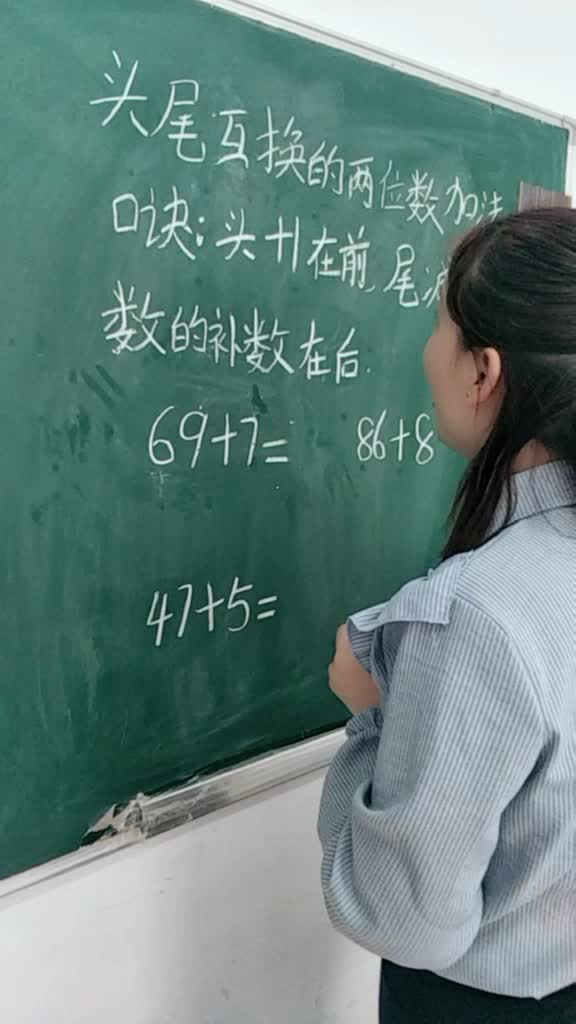 头尾互换的两位数加法
口诀:头+1在前,尾减
数的补数在后.
69+7= 86+8
47+5=